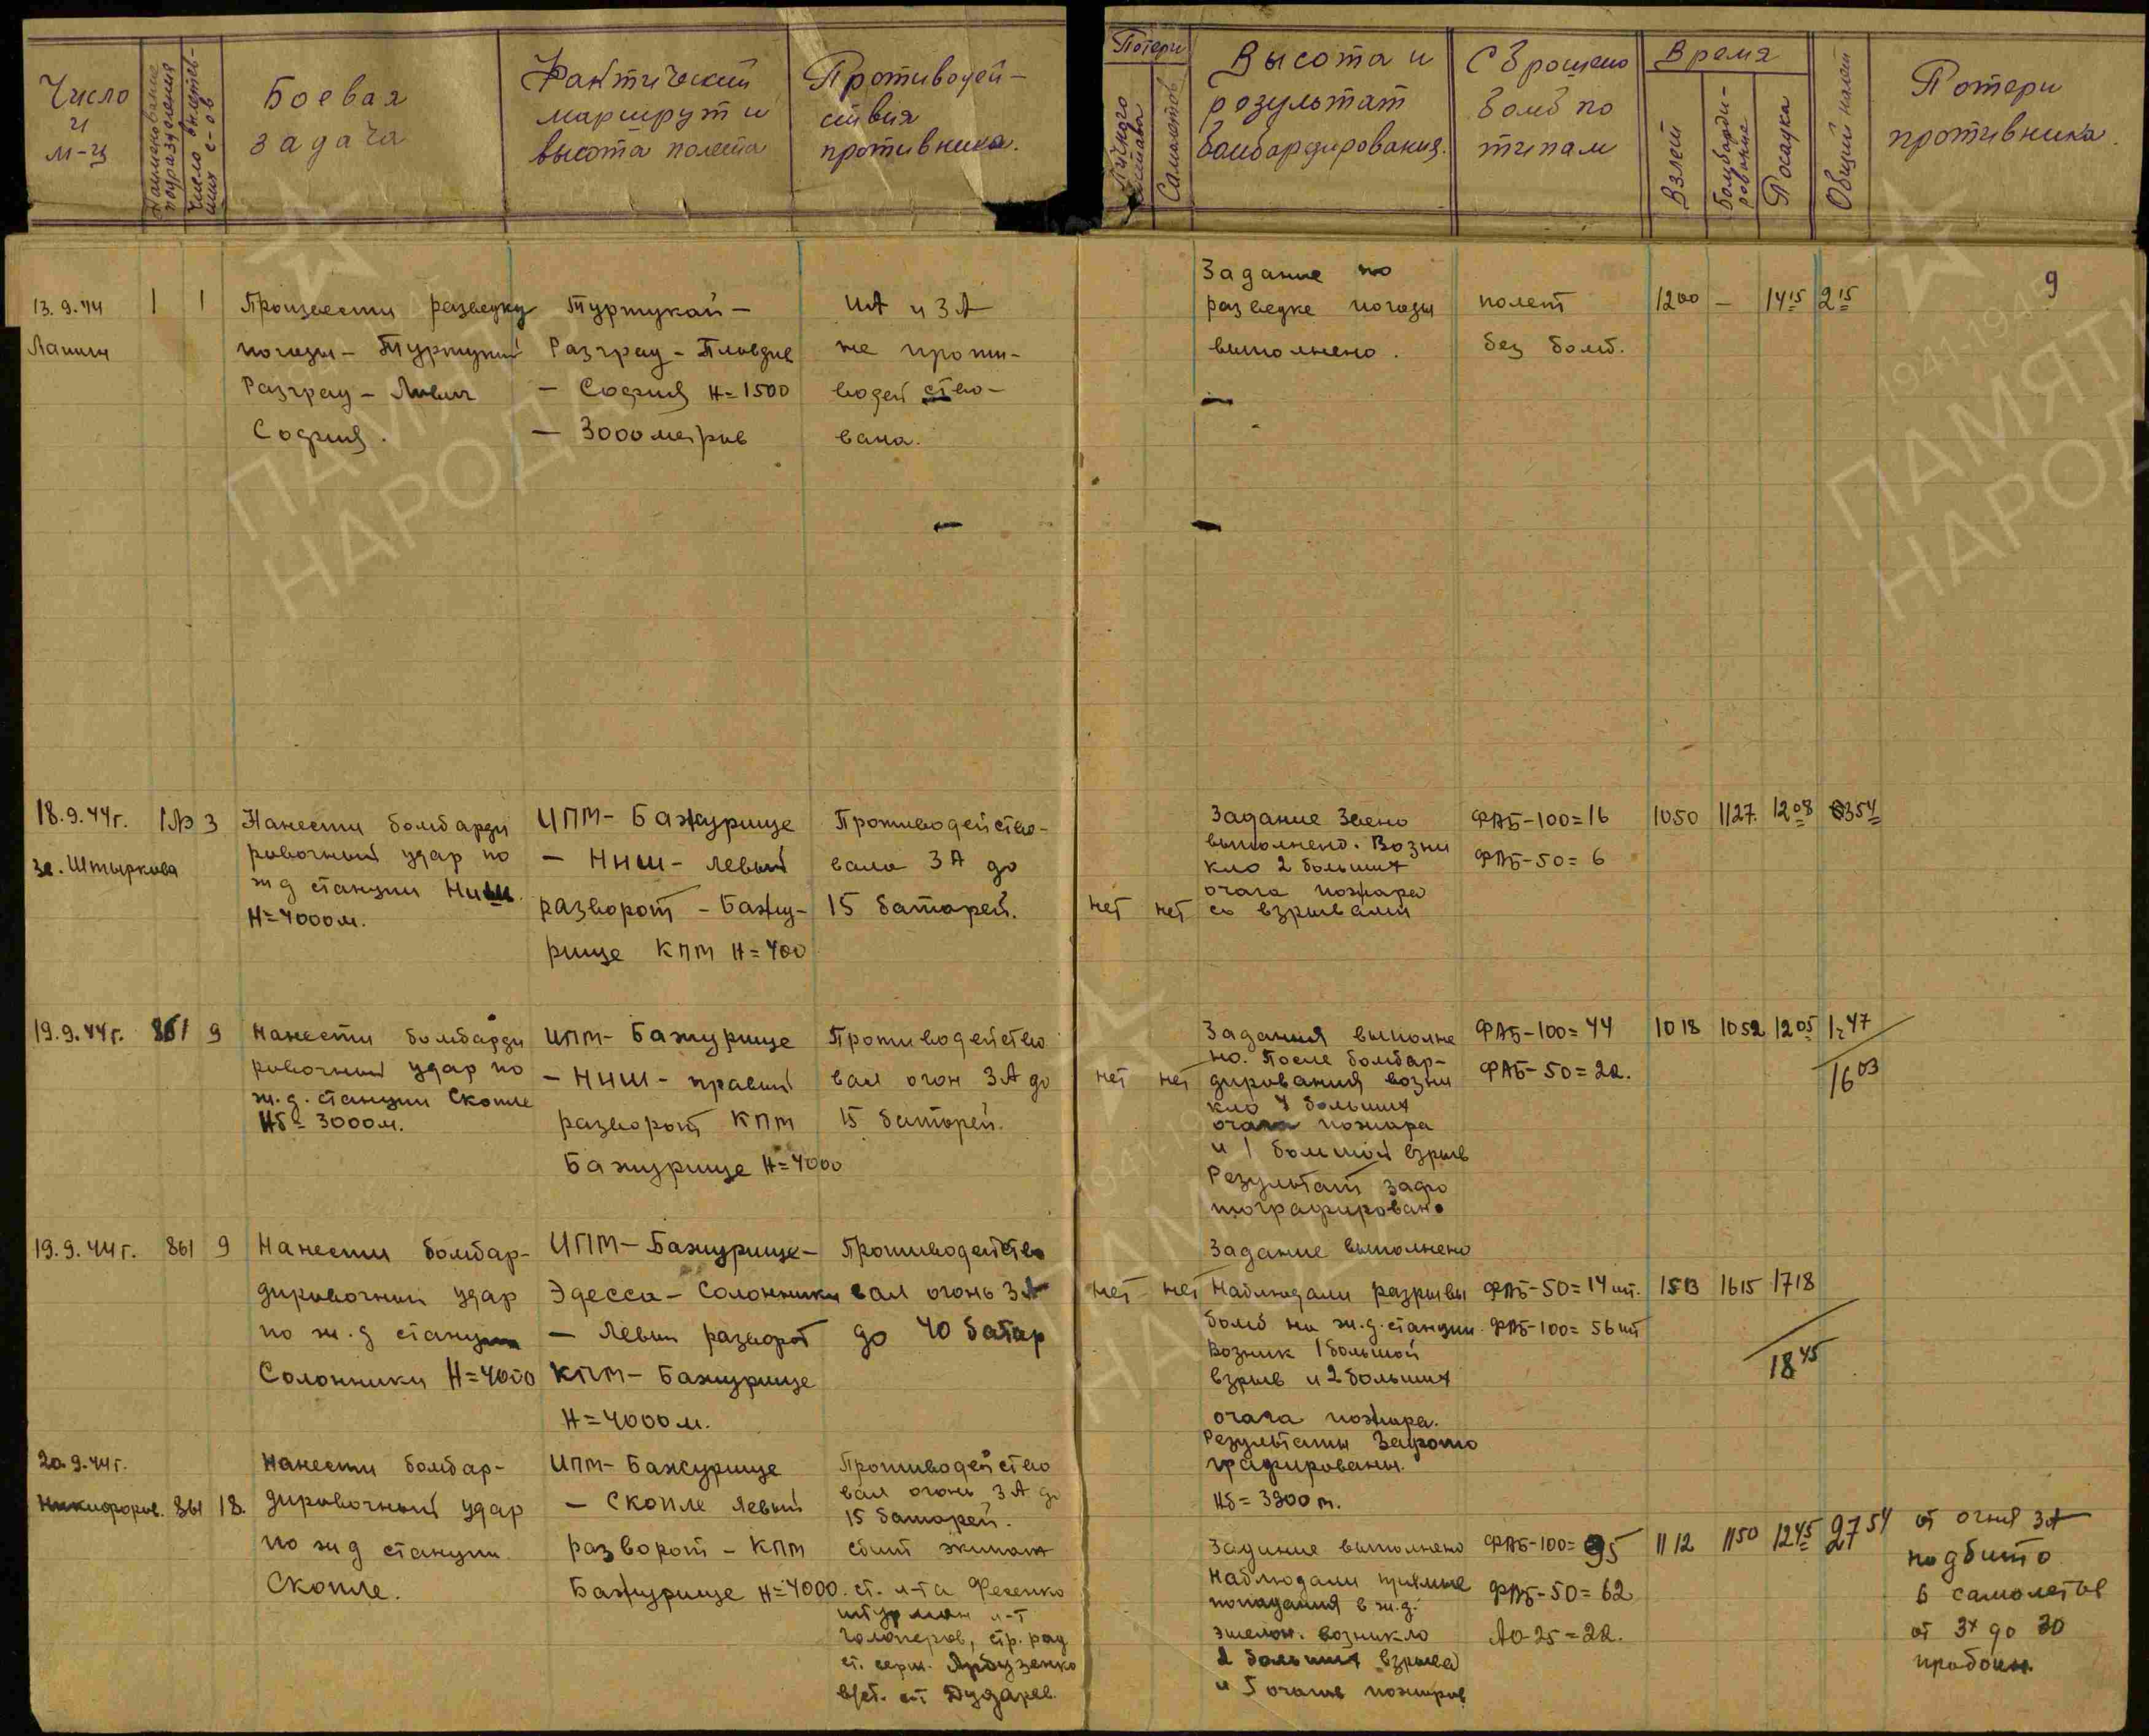 Число
и
м-ц
Наименование
подразделения
Число вылетев-
ших с-ов
Боевая
задача
Фактический
маршрут и
высота полета
Противодей-
ствия
противника.
Потери
Лётного
состава
Самолетов
Высота и
результат
бомбардирования.
Сброшено
бомб по
типам
Время
Взлет
Бомбарди-
рование
Посадка
Общий налет
Потери
противника.
9
13.9.44
Лапин
1
1
Произвести разведку
погоды - Туртукай
Разград - Ловеч
София.
Туртукай -
Разград - Пловдив
- София Н=1500
- 3000 метров
ИА и ЗА
не проти-
водейство-
вала.
Задание по
разведке погоды
выполнено.
полет
без бомб.
1200
-
1415
215
18.9.44г.
Зв. Штыркова
3
Нанести бомбарди
ровочный удар по
жд станции Ниш.
Н=4000м.
ИПМ- Бажурище
- Ниш - левый
разворот - Бажу-
рище КПМ Н=400
Противодейство-
вала ЗА до
15 батарей.
нет
нет
Задание Звено
выполнено. Возни
кло 2 больших
очага пожара
со взрывами
ФАБ-100=16
ФАБ-50=6
1050
1127.
1208
354
19.9.44г.
861
9
Нанести бомбарди
ровочный удар по
ж.д. станции Скопле
Нб= 3000м.
ИПМ- Бажурище
- Ниш - правый
разворот КПМ
Бажурище Н=4000
Противодейство
вал огон ЗА до
15 батарей.
нет
нет
Задания выполне
но. После бомбар-
дирования возни
кло 4 больших
очага пожара
и 1 большой взрыв
Результат зафо
тографировано
ФАБ-100=44
ФАБ-50=22.
1018
1052
1205
1.47
1603
19.9.44г.
861
9
Нанести бомбар-
дировочный удар
по ж.д станции
Солонники Н=4000
ИПМ- Бажурище-
Эдесса - Солонники
- Левый разворот
КПМ- Бажурище
Н=4000м.
Противодейство
вал огонь ЗА
до 40 батар
нет
нет
Задание выполнено
Наблюдали разрывы
бомб на ж.д. станции.
Возник 1 большой
взрыв и 2 больших
очага пожара.
Результаты Зафото
графированы.
Нб=3900м.
ФАБ-50=14шт.
ФАБ-100=56шт
1513
1615
1718
1845
20.9.44г.
Никифоров.
861
18.
Нанести бомбар-
дировочный удар
по жд станции
Скопле.
ИПМ- Бажурище
- Скопле левый
разворот - КПМ
Бажурище Н=4000.
Противодейство
вал огонь ЗА до
15 батарей.
сбит экипаж
ст. л-та Фесенко
штурман л-т
стр. рад
ст. серж. Арбузенко
в/ст. ст Дударев.
Задание выполнено
Наблюдали прямые
попадания в ж.д.
эшелон. возникло
2 больших взрыва
и 5 очагов пожаров
ФАБ-100=95
ФАБ-50=62
АО-25=22.
1112
1150
1245
2754
от огня ЗА
подбито
6 самолетов
от 3х до 30
пробоин
ПАМЯТЬ
НАРОДА
1941-1945